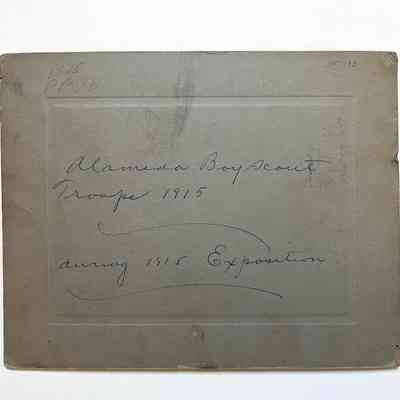 1915
Alameda Boy Scout
Troops 1915
during 1915 Exposition